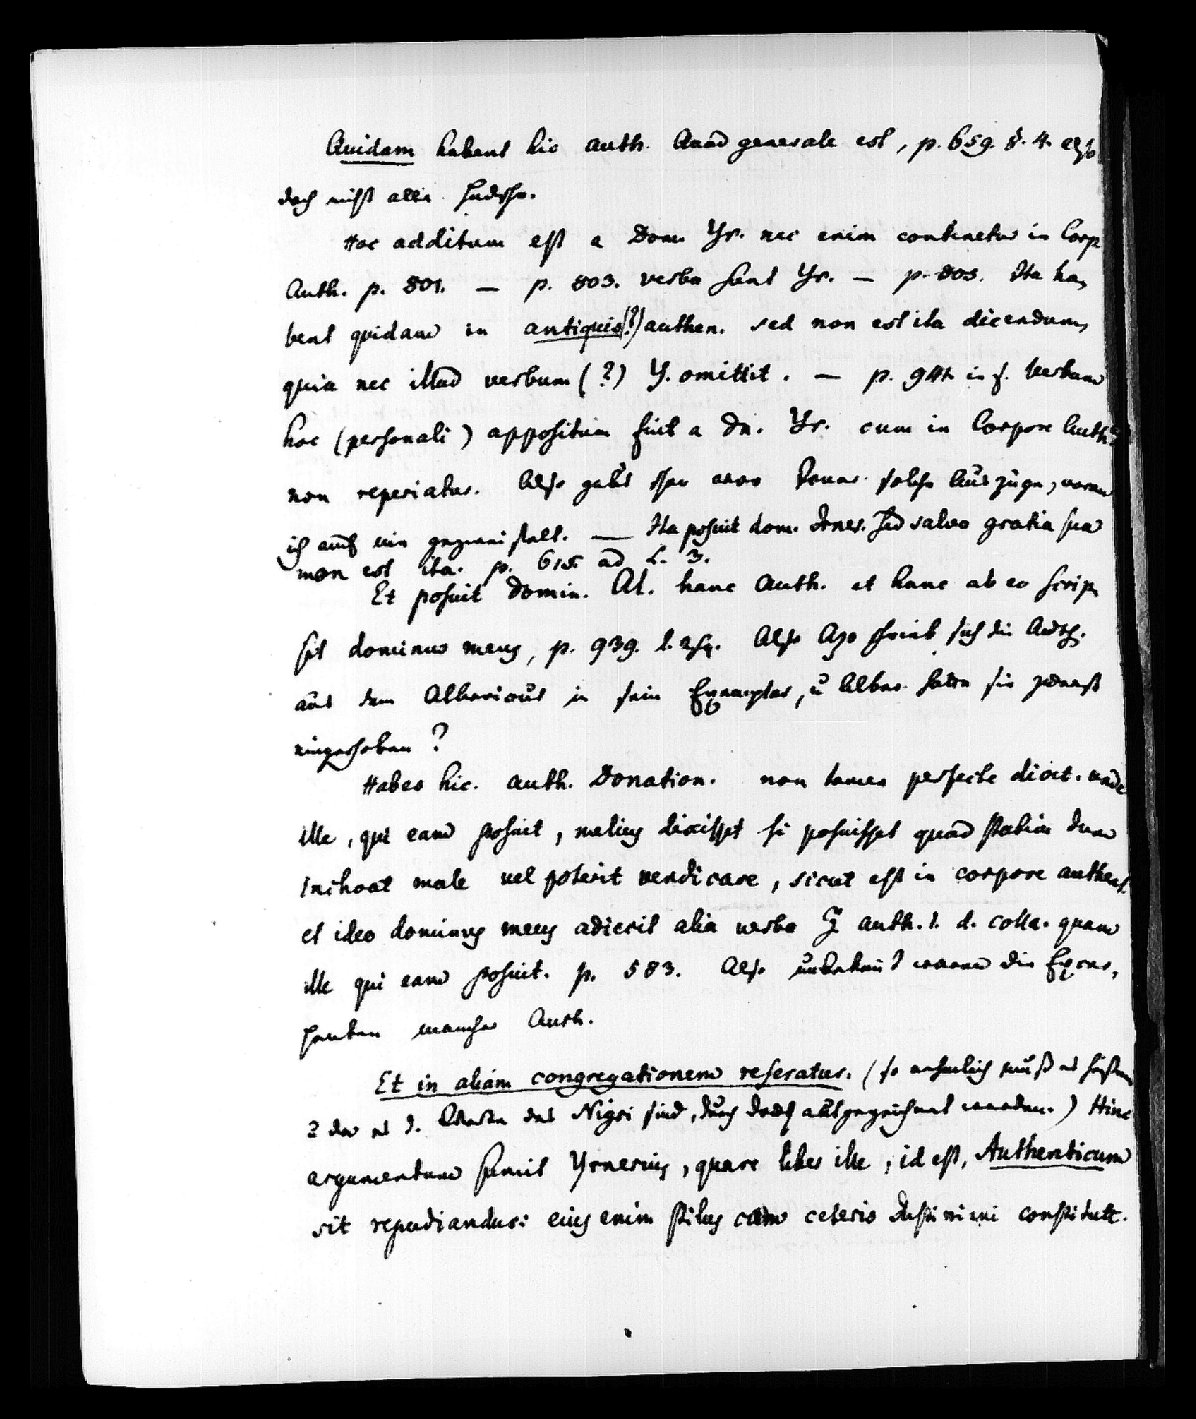 Quidam habent hic auth. Quod generale est, p. 659 §. 4. also
doch nicht alle
Hoc additum est a Dom. Yr. nec enim continetur in Corp
Auth. p. 801. — p. 803. verba sunt Yr. — p. 803. Ita ha,
bent quidam in antiquis(?) authen. sed non est ita dicendum,
quia nec illud verbum (?) Y. omittit. — p. 941. in f. Verbum
hoc (personali) appositum fuit a Dn. Yr. cum in Corpore Auth.
non reperiatur. Also gab's solche Auszüge, woran
ich auch ein — Ita posuit dom. Irner. Sed salva gratia sua
non est ita. p. 615 ad L. 3.
Et posuit Domin. Al. hanc Auth. et hanc ab eo scrip
sit dominus meus, p. 939. l. Also Azo schrieb sich die Auth.
aus dem Albericus in sein Exemplar, u Alber. hatte sie zuerst
eingeschoben?
Habes hic. auth. Donation. non tamen perfecte dicit. unde
ille, qui eam posuit, melius dixisset si posuisset quod statim dum
inchoat male uel poterit vendicare, sicut est in corpore authent.
et ideo dominus meus adiecit alia verba auth. 1. d. colla. quam
ille qui eam posuit. p. 583. Also unbekant waren die Excer,
penten mancher Auth.
Et in aliam congregationem referatur. (so muß es heißen
2 da es d. des Nigri sind, durch ausgezeichnet werden.) Hinc
argumentum sumit Yrnerius, quare liber ille, id est, Authenticum
sit repudiandus: eius enim stilus cum ceteris Justiniani constitutt.